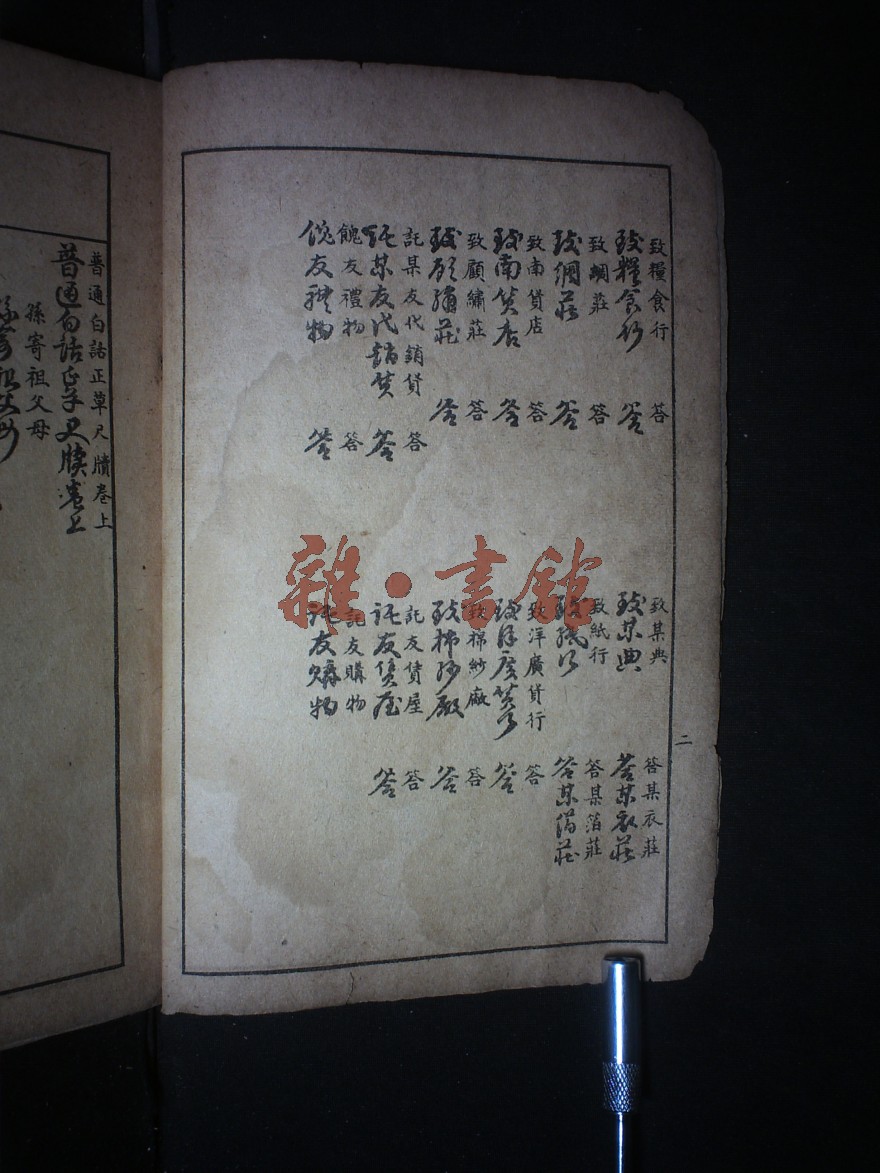 二
致糧食行 答 致某典 答某衣莊
致糧食行 答 致某典 答某衣莊
致綢莊 答 致紙行 答某箔莊
致綢莊 答 致紙行 答某箔莊
致南貨店 答 致洋廣貨行 答
致南貨店 答 致洋廣貨行 答
致顧繡莊 答 致棉紗廠 答
致顧繡莊 答 致棉紗廠 答
託某友代銷貨 答 託友賃屋 答
託某友代銷貨 答 託友賃屋 答
餽友禮物 答 託友購物
餽友禮物 答 託友購物
普通白話正草尺牘卷上
普通白話正草尺牘卷上
孫寄祖父母
孫寄祖父母
雜·書館